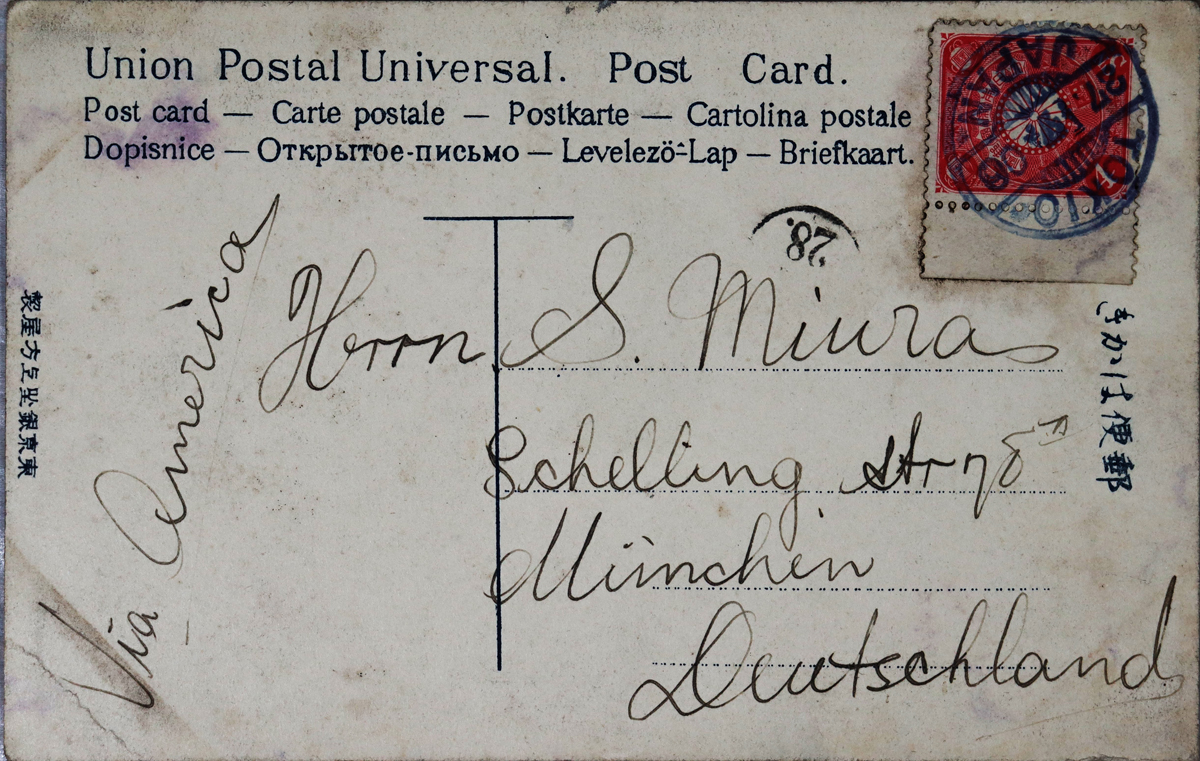 Union Postal Universal. Post Card.
Post card — Carte postale — Postkarte — Cartolina postale
Dopisnice — Открытое-письмо — Levelezö-Lap — Briefkaart.
TOKIO
JAPAN
28.
Via America
Herrn S. Miura
Schelling str
München
Deutschland
郵便はかき
東京銀座上方屋製